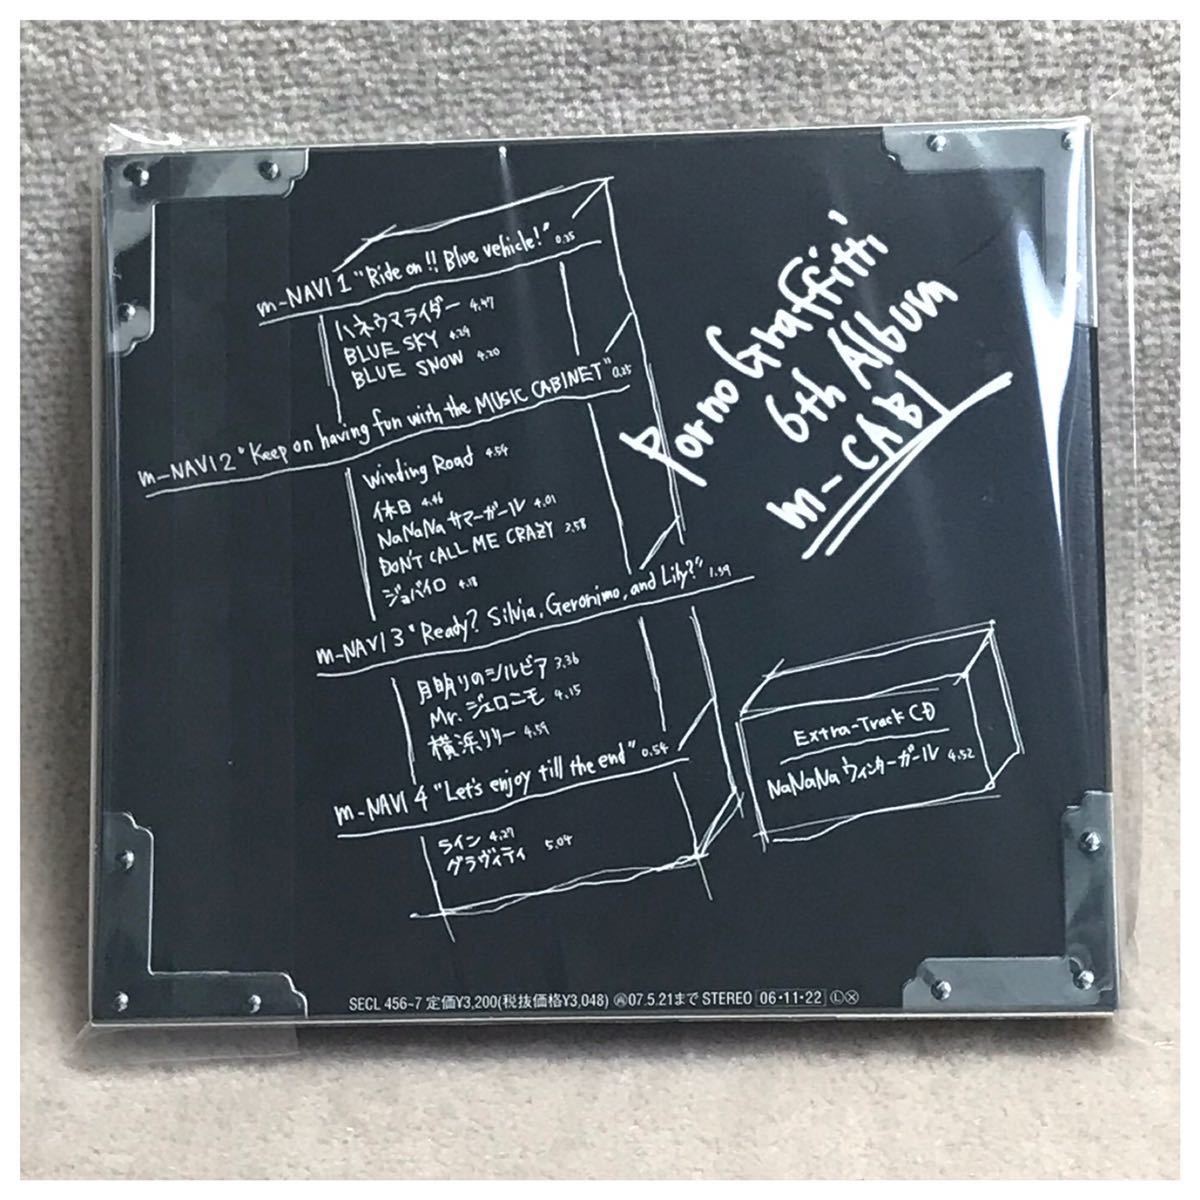 m-NAVI 1 "Ride on!! Blue vehicle!" 0.35
ハネウマライダー 4.47
BLUE SKY 4.29
BLUE SNOW 4.20
m-NAVI 2 "Keep on having fun with the MUSIC CABINET" 0.25
Winding Road 4.54
休日 4.46
NaNaNa サマーガール 4.01
DON'T CALL ME CRAZY 3.58
ジョバイロ 4.18
m-NAVI 3 "Ready? Silvia, Geronimo, and Lily?" 1.39
月明りのシルビア 3.36
Mr. ジェロニモ 4.15
横浜リリー 4.59
m-NAVI 4 "Let's enjoy till the end" 0.54
ライン 4.27
グラヴィティ 5.04
Porno Graffitti
6th Album
m-CABI
Extra-Track CD
NaNaNa ウィンターガール 4.52
SECL 456~7 定価¥3,200(税抜価格¥3,048) 再07.5.21まで STEREO 06・11・22 Ⓛ Ⓧ